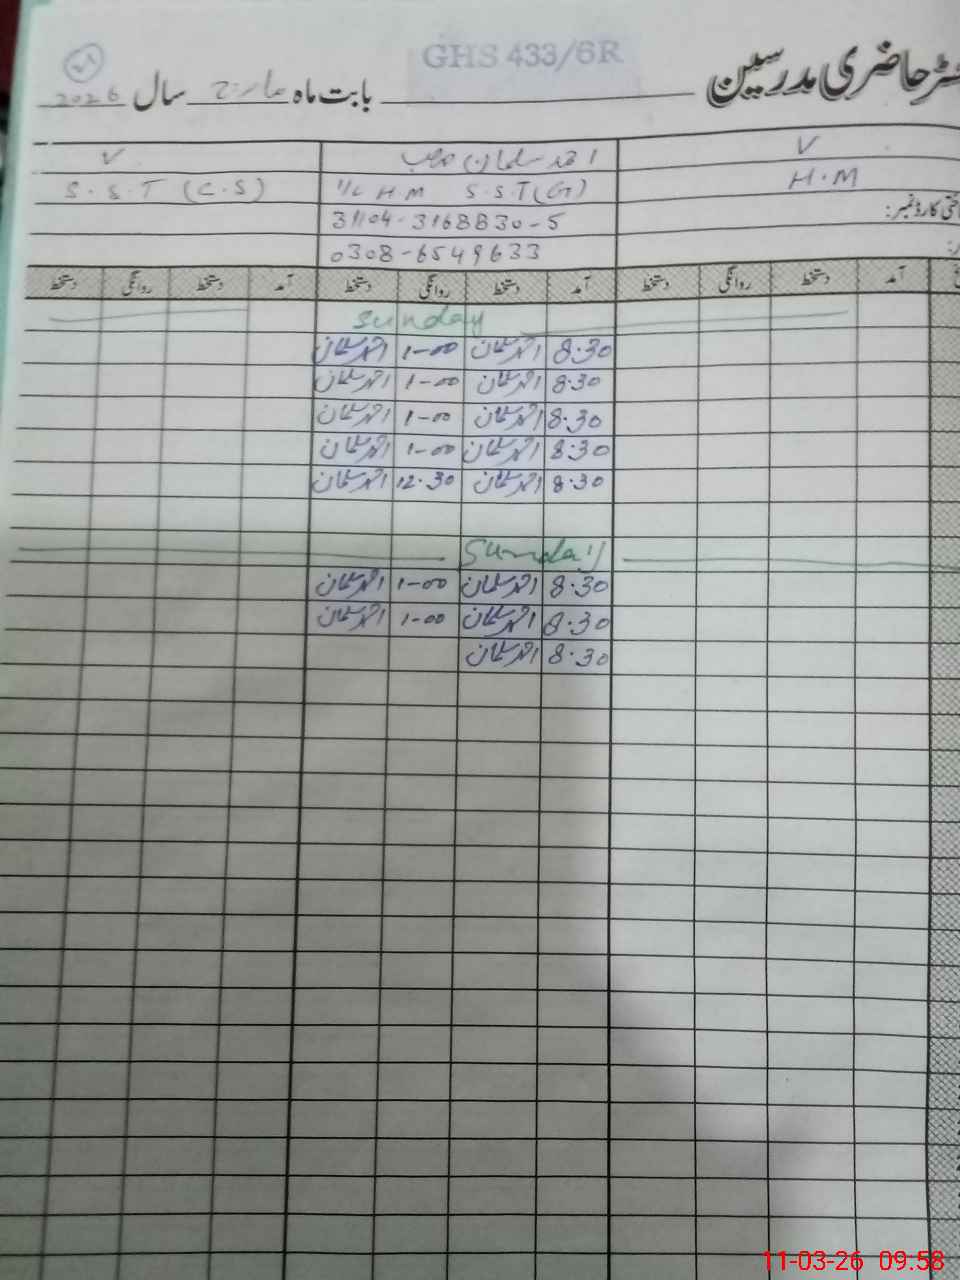 GHS 433/6R
رجسٹر حاضری مدرسین بابت ماہ مارچ سال 2026
V احمد سلمان صاحب V
H.M I/C H.M S.S.T(G) S.S.T (C.S)
شناختی کارڈ نمبر: 31104-3168830-5
0308-6549633
آمد دستخط روانگی دستخط آمد دستخط روانگی دستخط آمد دستخط روانگی دستخط
Sunday
8.30 احمد سلمان 1-00 احمد سلمان
8.30 احمد سلمان 1-00 احمد سلمان
8.30 احمد سلمان 1-00 احمد سلمان
8.30 احمد سلمان 1-00 احمد سلمان
8.30 احمد سلمان 12.30 احمد سلمان
Sunday
8.30 احمد سلمان 1-00 احمد سلمان
8.30 احمد سلمان 1-00 احمد سلمان
8.30 احمد سلمان
11-03-26 09.58